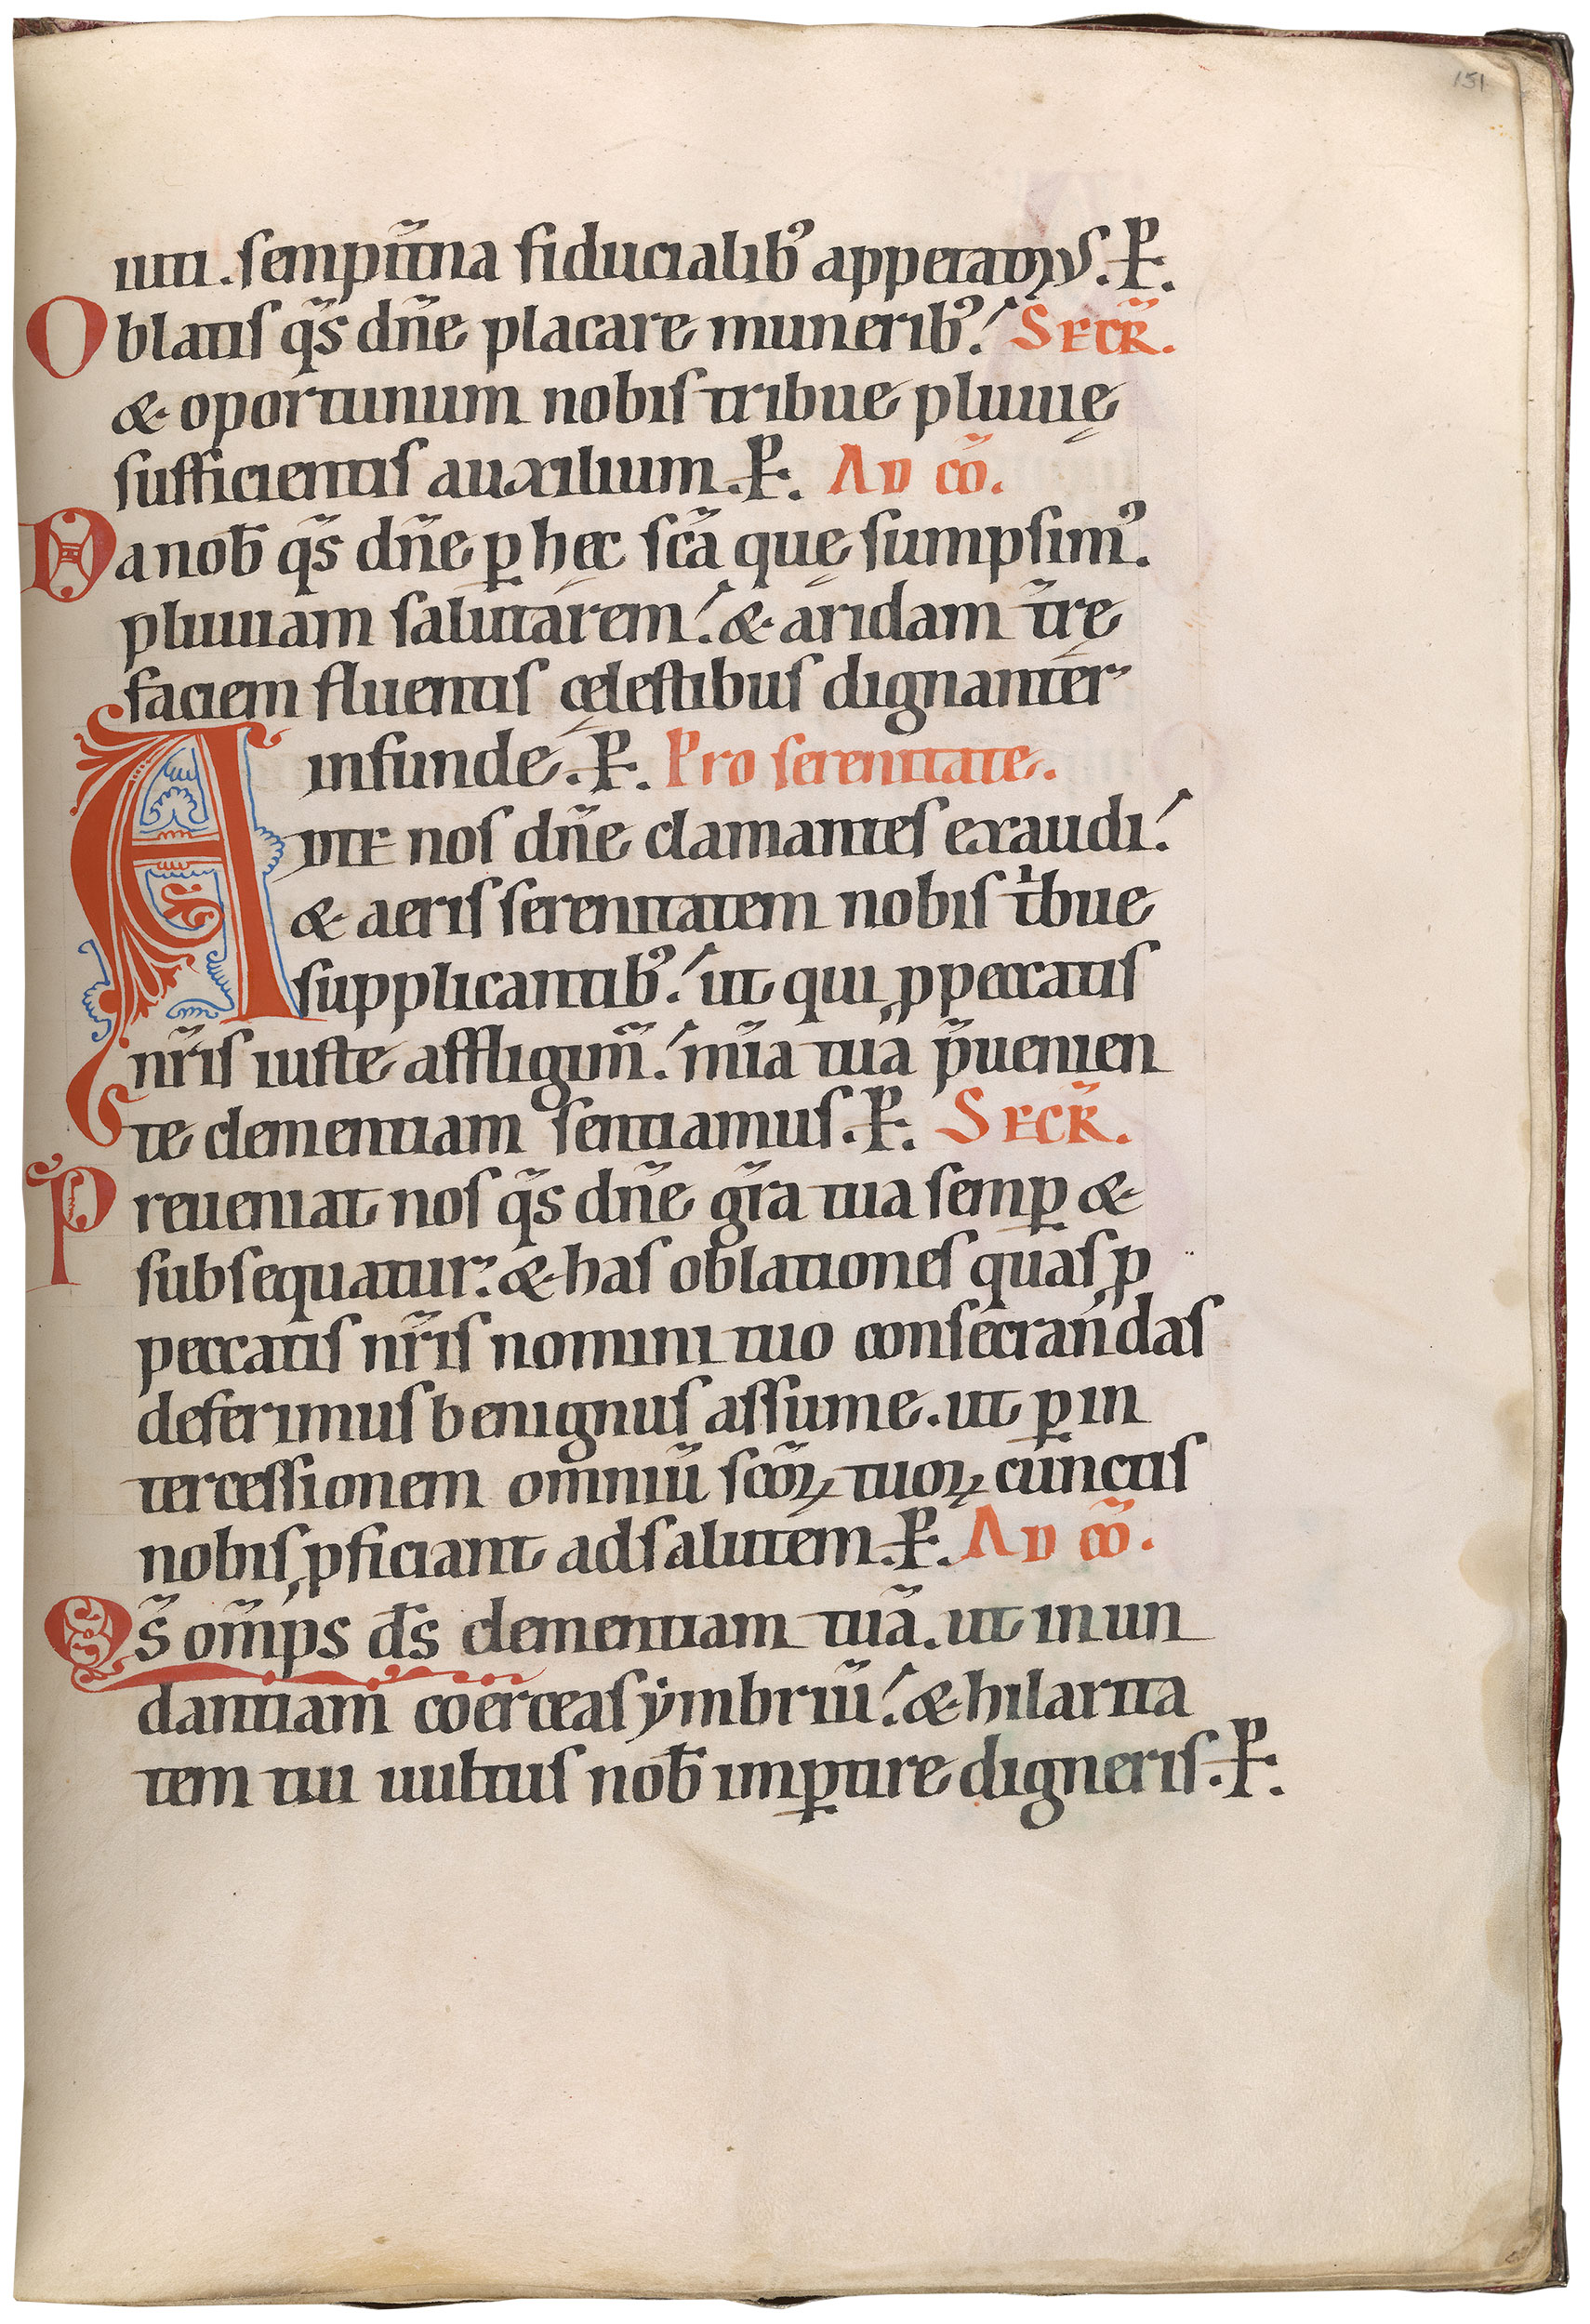 151
iuti. sempit̃na fiducialib᾽ appetam᾽us. P̵.
Oblatis q̃s dñe placare munerib᾽. SECR̃.
& oportunum nobis tribue pluuię
sufficientis auxilium. P̵. AD cõ.
Da nob̄ q̃s dñe ꝑ hęc sc̃a quę sumpsim᾽.
pluuiam salutarem. & aridam t̃rę
faciem fluentis cęlestibus dignanter
infunde. P̵. Pro serenitate.
AD TE nos dñe clamantes exaudi.
& aeris serenitatem nobis tⁱbue
supplicantib᾽. ut qui ꝓ peccatis
nr̃is iuste affligim̃. mĩa tua p̃uenien
te clementiam sentiamus. P̵. SECR̃.
Preueniat nos q̃s dñe gr̃a tua semꝑ &
subsequatur. & has oblationes quas ꝓ
peccatis nr̃is nomini tuo consecrandas
deferimus benignus assume. ut ꝑ in
tercessionem omniũ sc̃oꝝ tuoꝝ cunctis
nobis ꝓficiant ad salutem. P̵. AD cõ.
Qs̃ om̃ps d̄s clementiam tuã. ut inun
dantiam coerceas ẏmbriũ. & hilarita
tem tui uultus nob̄ imꝑtire digneris. P̵.